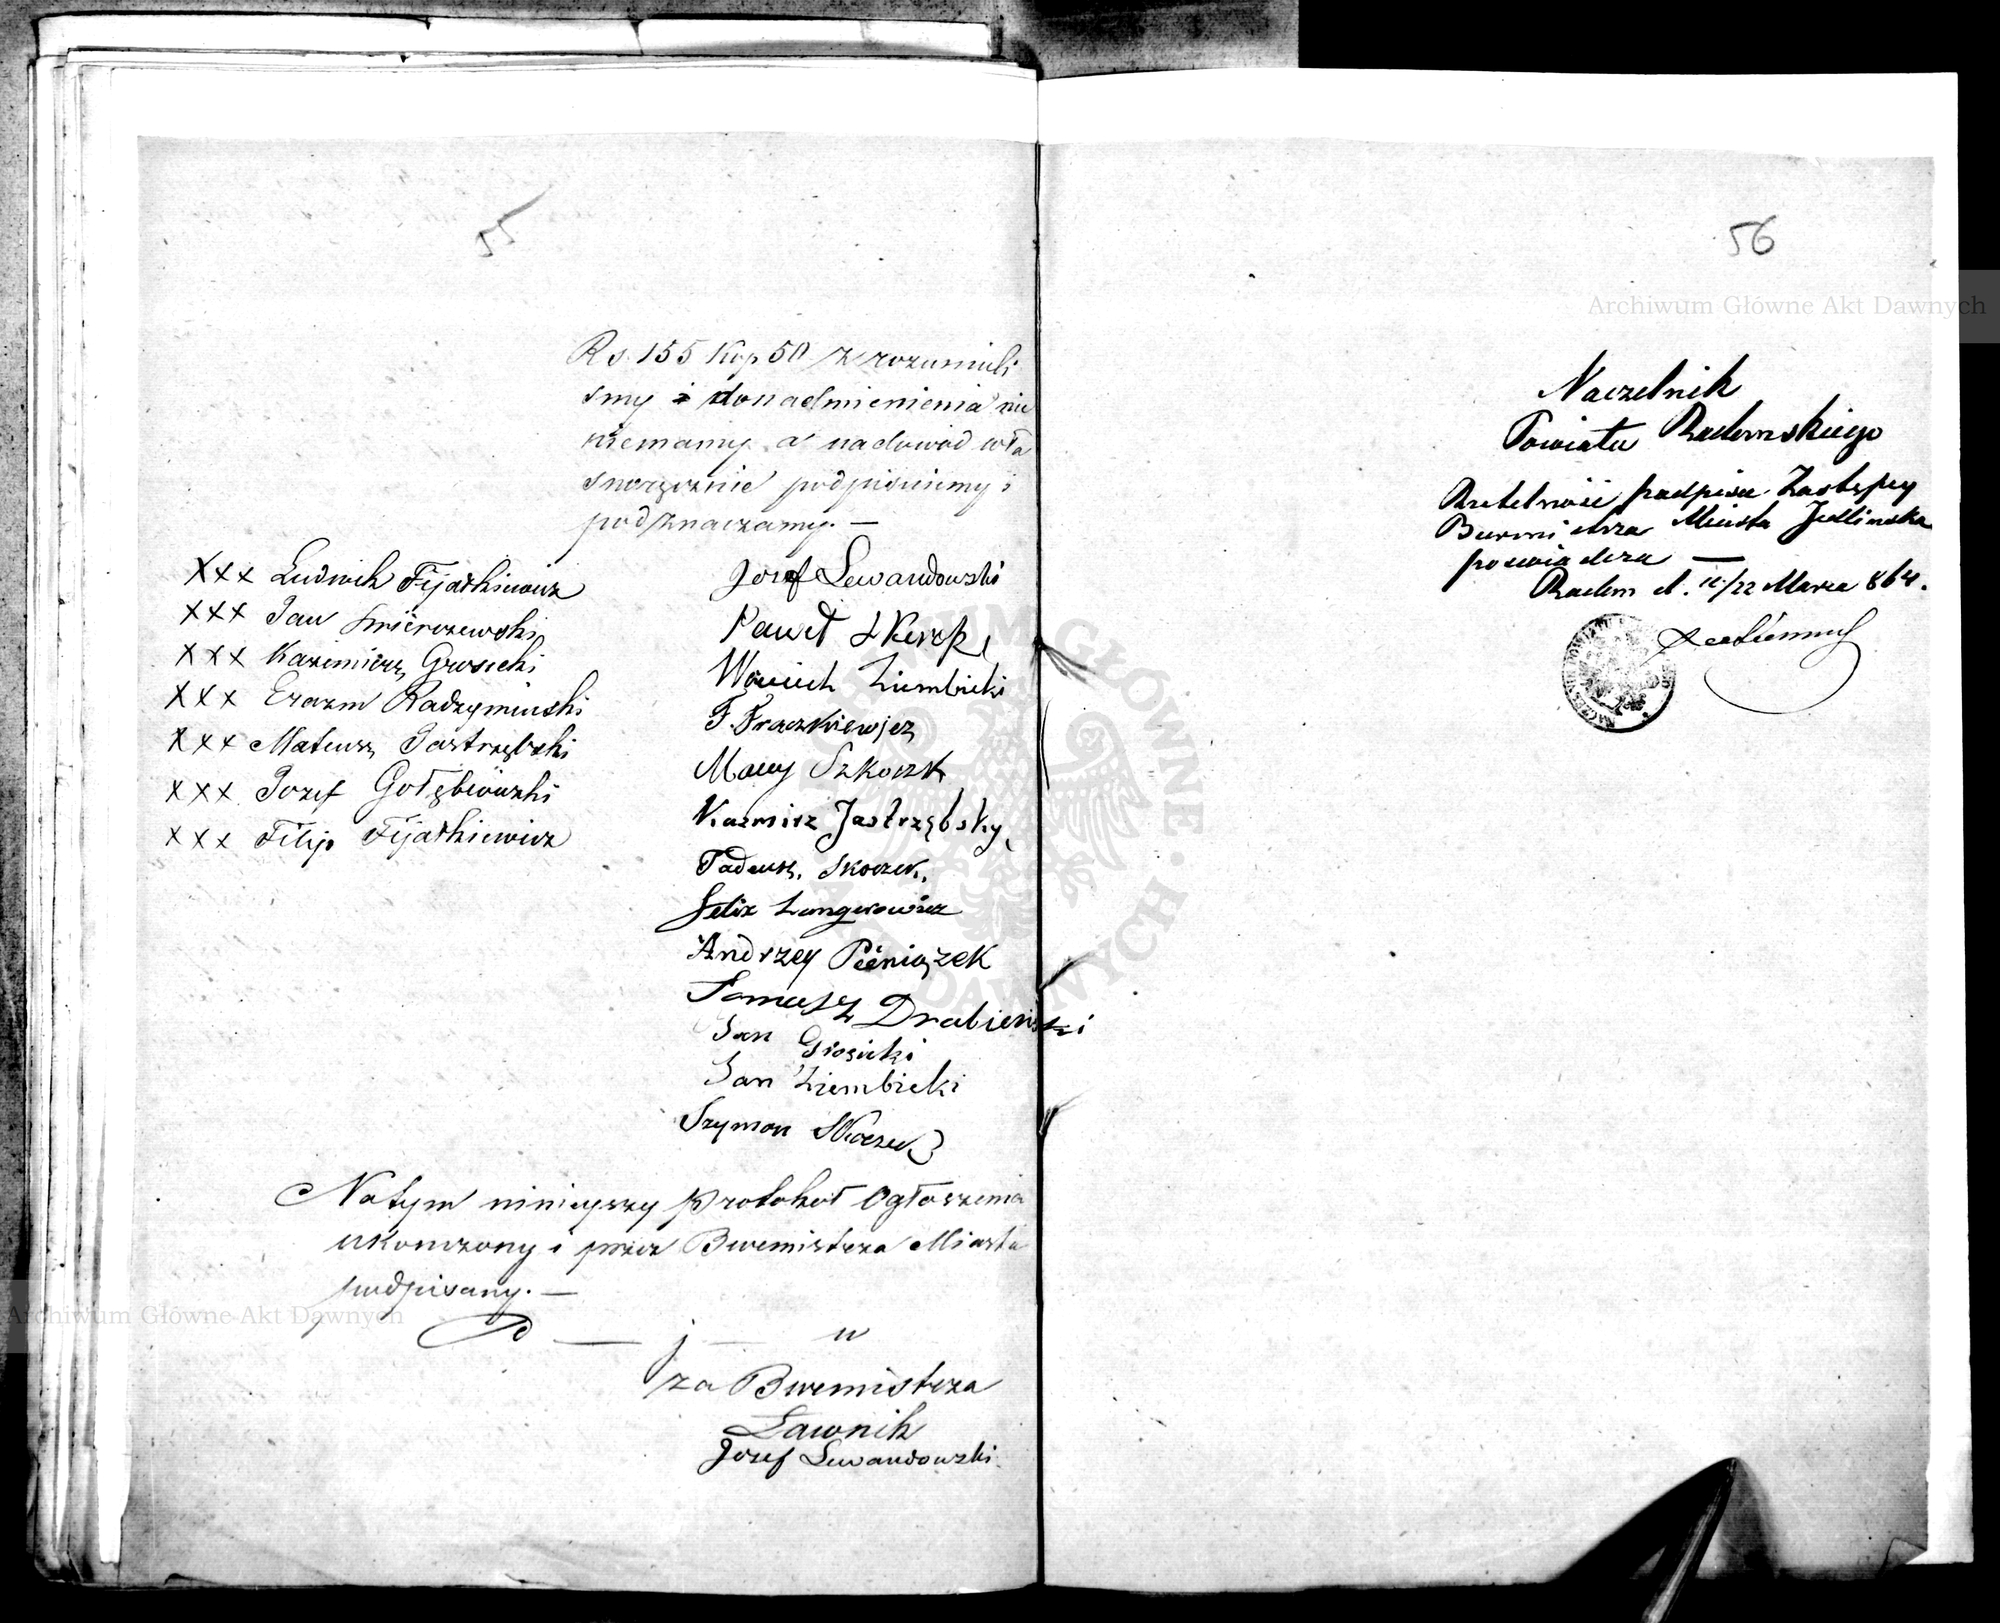 55
Rs. 155 Kop 50 zrozumieli
smy i donadmienienia nic
niemamy a nadowód wła
snoręcznie podpisuiemy i
podznaczamy. —
XXX Ludwik Fijałkiewicz
XXX Jan Świerczewski
XXX Kazimierz Grosicki
XXX Erazm Radzymiński
XXX Mateusz Jastrzębski
XXX Jozef Gołębiowski
XXX Filip Fijałkiewicz
Jozef Lewandowski
Paweł
Woyciech Ziembicki
F. Fraczkiewjcz
Szkoczk
Kazmirz Jastrzębsky
Tadeusz. Skoczek.
Felix Longwowicz
Andrzey Pieniązek
Tomasz Drabieński
Jan Grosicki
Jan Ziembicki
Szymon Skoczek
Natym ninieyszy protokoł Ogłoszenia
ukonczony i przez Burmistrza Miasta
podpisany. —
za Burmistrza
Ławnik
Jozef Lewandowski
56
Naczelnik
Powiatu Radomskiego
Rzetelność podpisu Zastępcy
Burmistrza Miasta Jedlinska
poswiadcza —
Radom d. 10/22 Marca 864.
Archiwum Główne Akt Dawnych
Archiwum Główne Akt Dawnych